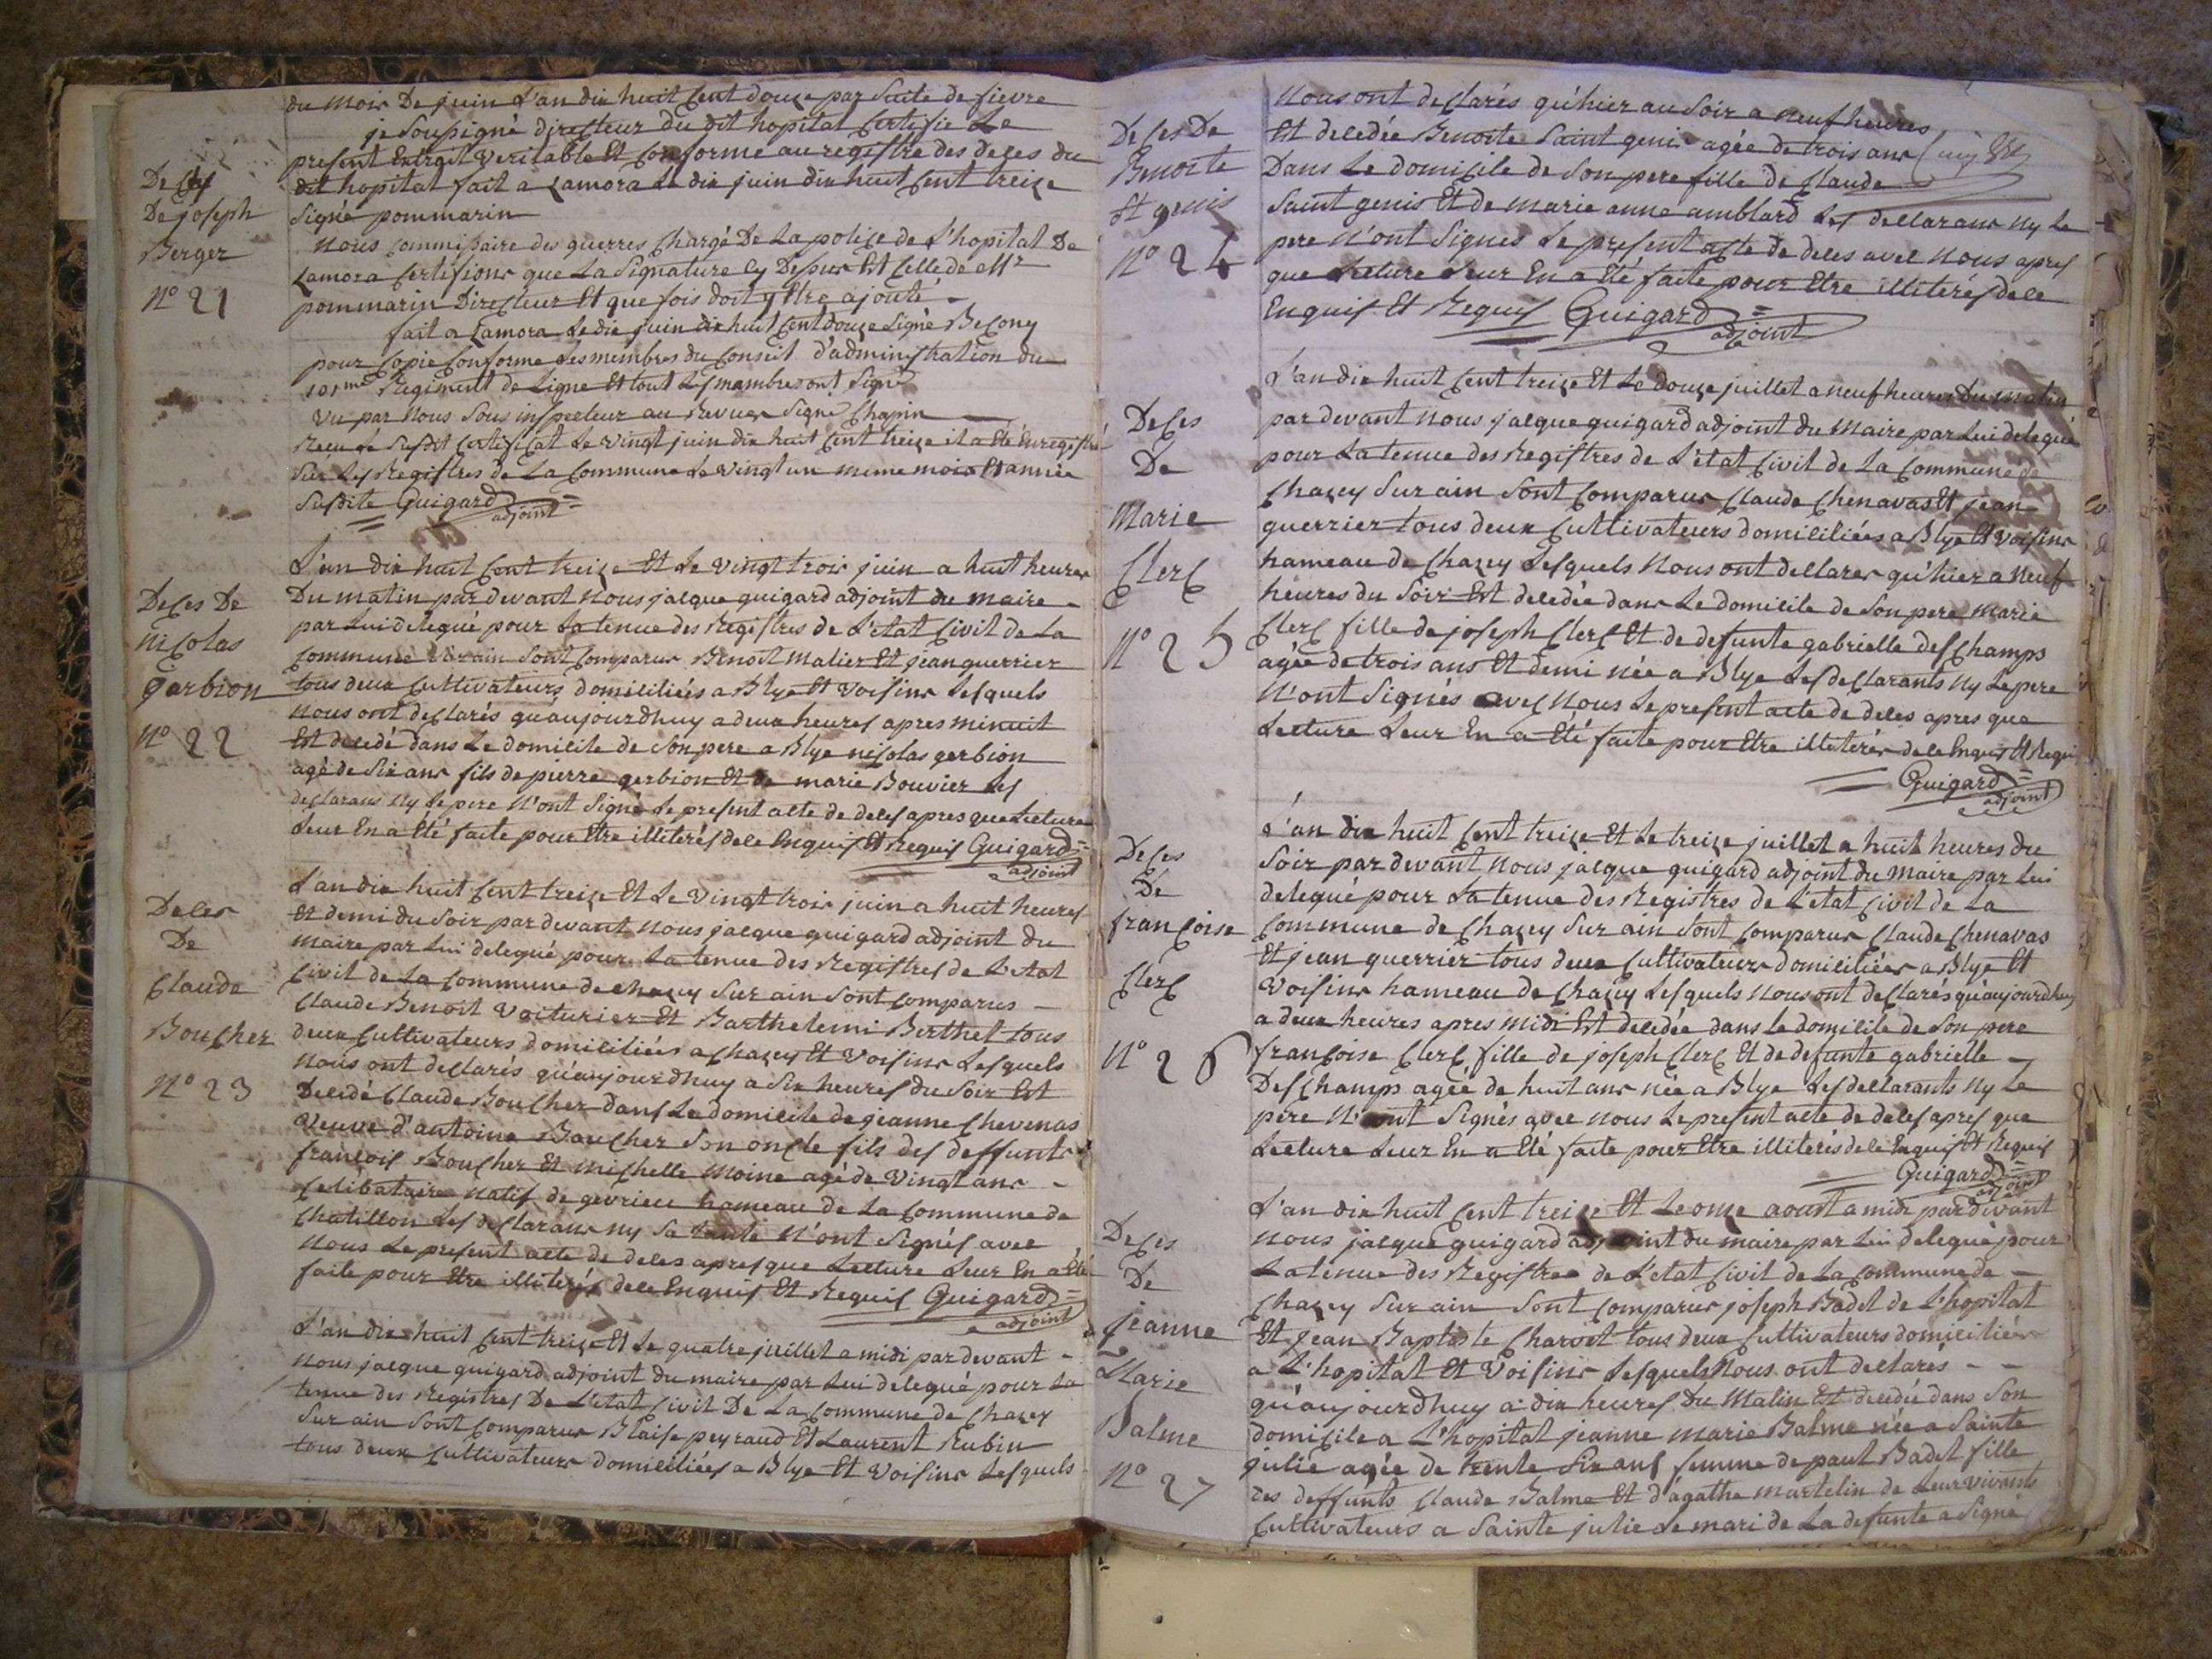 du mois De juin L'an dix huit Cent douze par Suite de fievre
je Soussigné directeur du dit hopital Certifie Le
present Extrait veritable Et Conforme au registre des deces du
dit hopital fait a Zamora Le dix juin dix huit Cent treize
Signé pommarin
Nous Commissaire des guerres Chargé De La police de L'hopital De
Zamora Certifions que La Signature Cy Dessus Est Celle de Mr
pommarin Directeur Et que fois doit y Etre ajouté
fait a Zamora Le dix juin dix huit Cent douze Signé Becony
pour Copie Conforme Les membres du Conseil d'administration du
101me Regiment de Ligne Et tout Les mambres ont Signé
Vu par Nous Sous inspecteur au Revues Signé Chapin
Recu Le Susdit Certificat Le vingt juin dix huit Cent treize il a Eté Enregistré
Sur Les Registres de La Commune Le vingt un meme mois Et année
Susdite Guigard
adjoint
Deces
De joseph
Berger
N° 21
L'an dix huit Cent treize Et Le vingt trois juin a huit heures
Du matin par devant Nous jacque guigard adjoint du maire
par Lui delegué pour La tenue des Registres de L'etat Civil de La
Commune Sont Comparus Benoit Malier Et jean guerrier
tous deux Cultivateurs domiciliées a Blye Et Voisins Lesquels
Nous ont declarés qu'aujourdhuy a deux heures apres minuit
Est decedé dans Le domicile de Son pere a Blye nicolas gerbion
agé de Six ans fils de pierre gerbion Et de marie Bouvier Les
declarans Ny Le pere N'ont Signé Le present acte de deces apres que Lecture
Leur En a Eté faite pour Etre illiterés de ce Enquis Et Requis Guigard
adjoint
Deces De
Nicolas
garbion
N° 22
L'an dix huit Cent treize Et Le Vingt trois juin a huit heures
Et demi du Soir par devant Nous jacque guigard adjoint du
maire par Lui delegué pour La tenue des Registres de L'etat
Civil de La Commune de chazey Sur ain Sont Comparus
Claude Benoit Voiturier Et Barthelemi Berthet tous
deux Cultivateurs domiciliées a Chazey Et Voisins Lesquels
Nous ont declarés qu'aujourdhuy a Six heures du Soir Est
Decedé Claude Boucher dans Le domicile de jeanne Chevenas
Veuve d'antoine Boucher Son oncle fils des deffunts
francois Boucher Et michelle Moine agé de Vingt ans
Celibataire natif de gevrieu hameau de La Commune de
Chatillon Les declarans ny Sa tante N'ont Signés avec
Nous Le present acte de deces apres que Lecture Leur En a Eté
faite pour Etre illiterés de ce Enquis Et Requis Guigard
adjoint
Deces
De
Claude
Boucher
N° 23
L'an dix huit Cent treize Et Le quatre juillet a midi par devant
Nous jacque guigard adjoint du maire par Lui delegué pour La
tenue des Registres De L'etat Civil De La Commune de Chazey
Sur ain Sont Comparus Blaise peyraud Et Laurent Rubin
tous deux Cultivateurs domiciliées a Blye Et Voisins Lesquels
Nous ont declarés qu'hier au Soir a neuf heures
Est decedée Benoite Saint genis agée de trois ans
Dans Le domicile de Son pere fille de Claude
Saint genis Et de marie anne amblard Les declarans Ny Le
pere N'ont Signés Le present acte de deces avec Nous apres
que Lecture Leur En a Eté faite pour Etre illiterés de ce
Enquis Et Requis Guigard
adjoint
Deces De
Benoite
St genis
N° 24
L'an dix huit Cent treize Et Le douze juillet a neuf heures du matin
par devant Nous jacque guigard adjoint du Maire par Lui delegué
pour La tenue des Registres de L'etat Civil de La Commune de
Chazey Sur ain Sont Comparus Claude Chenavas Et jean
guerrier tous deux Cultivateurs domiciliées a Blye Et Voisins
hameau de Chazey Lesquels Nous ont declares qu'hier a Neuf
heures du Soir Est decedée dans Le domicile de Son pere Marie
Clerc fille de joseph Clerc Et de defunte gabrielle desChamps
agée de trois ans Et demi née a Blye Les declarants Ny Le pere
N'ont Signés avec Nous Le present acte de deces apres que
Lecture Leur En a Eté faite pour Etre illiterés de ce Enquis Et Requis
Guigard
adjoint
Deces
De
Marie
Clerc
N° 25
L'an dix huit Cent treize Et Le treize juillet a huit heures du
Soir par devant Nous jacque guigard adjoint du Maire par Lui
delegué pour La tenue des Registres de L'etat Civil de La
Commune de Chazey Sur ain Sont Comparus Claude Chenavas
Et jean guerrier tous deux Cultivateurs domiciliées a Blye Et
Voisins hameau de Chazey Lesquels Nous ont declarés qu'aujourdhuy
a deux heures apres midi Est decedée dans Le domicile de Son pere
francoise Clerc fille de joseph Clerc Et de defunte gabrielle
DesChamps agée de huit ans née a Blye Les declarants Ny Le
pere N'ont Signés avec Nous Le present acte de deces apres que
Lecture Leur En a Eté faite pour Etre illiterés de ce Enquis Et Requis
Guigard
adjoint
Deces
De
francoise
Clerc
N° 26
L'an dix huit Cent treize Et Le onze aoust a midi par devant
Nous jacque guigard adjoint du maire par Lui delegué pour
La tenue des Registres de L'etat Civil de La Commune de
Chazey Sur ain Sont Comparus joseph Badet de L'hopital
Et Jean Baptiste Charvet tous deux Cultivateurs domiciliées
a L'hopital Et Voisins Lesquels Nous ont declarés
qu'aujourdhuy a dix heures Du Matin Est decedée dans Son
domicile a L'hopital jeanne marie Balme née a Sainte
julie agée de trente Six ans femme de paul Badet fille
des deffunts Claude Balme Et d'agathe martelin de Leur vivants
Cultivateurs a Sainte julie Le mari de La defunte a Signé
Deces
De
jeanne
Marie
Balme
N° 27